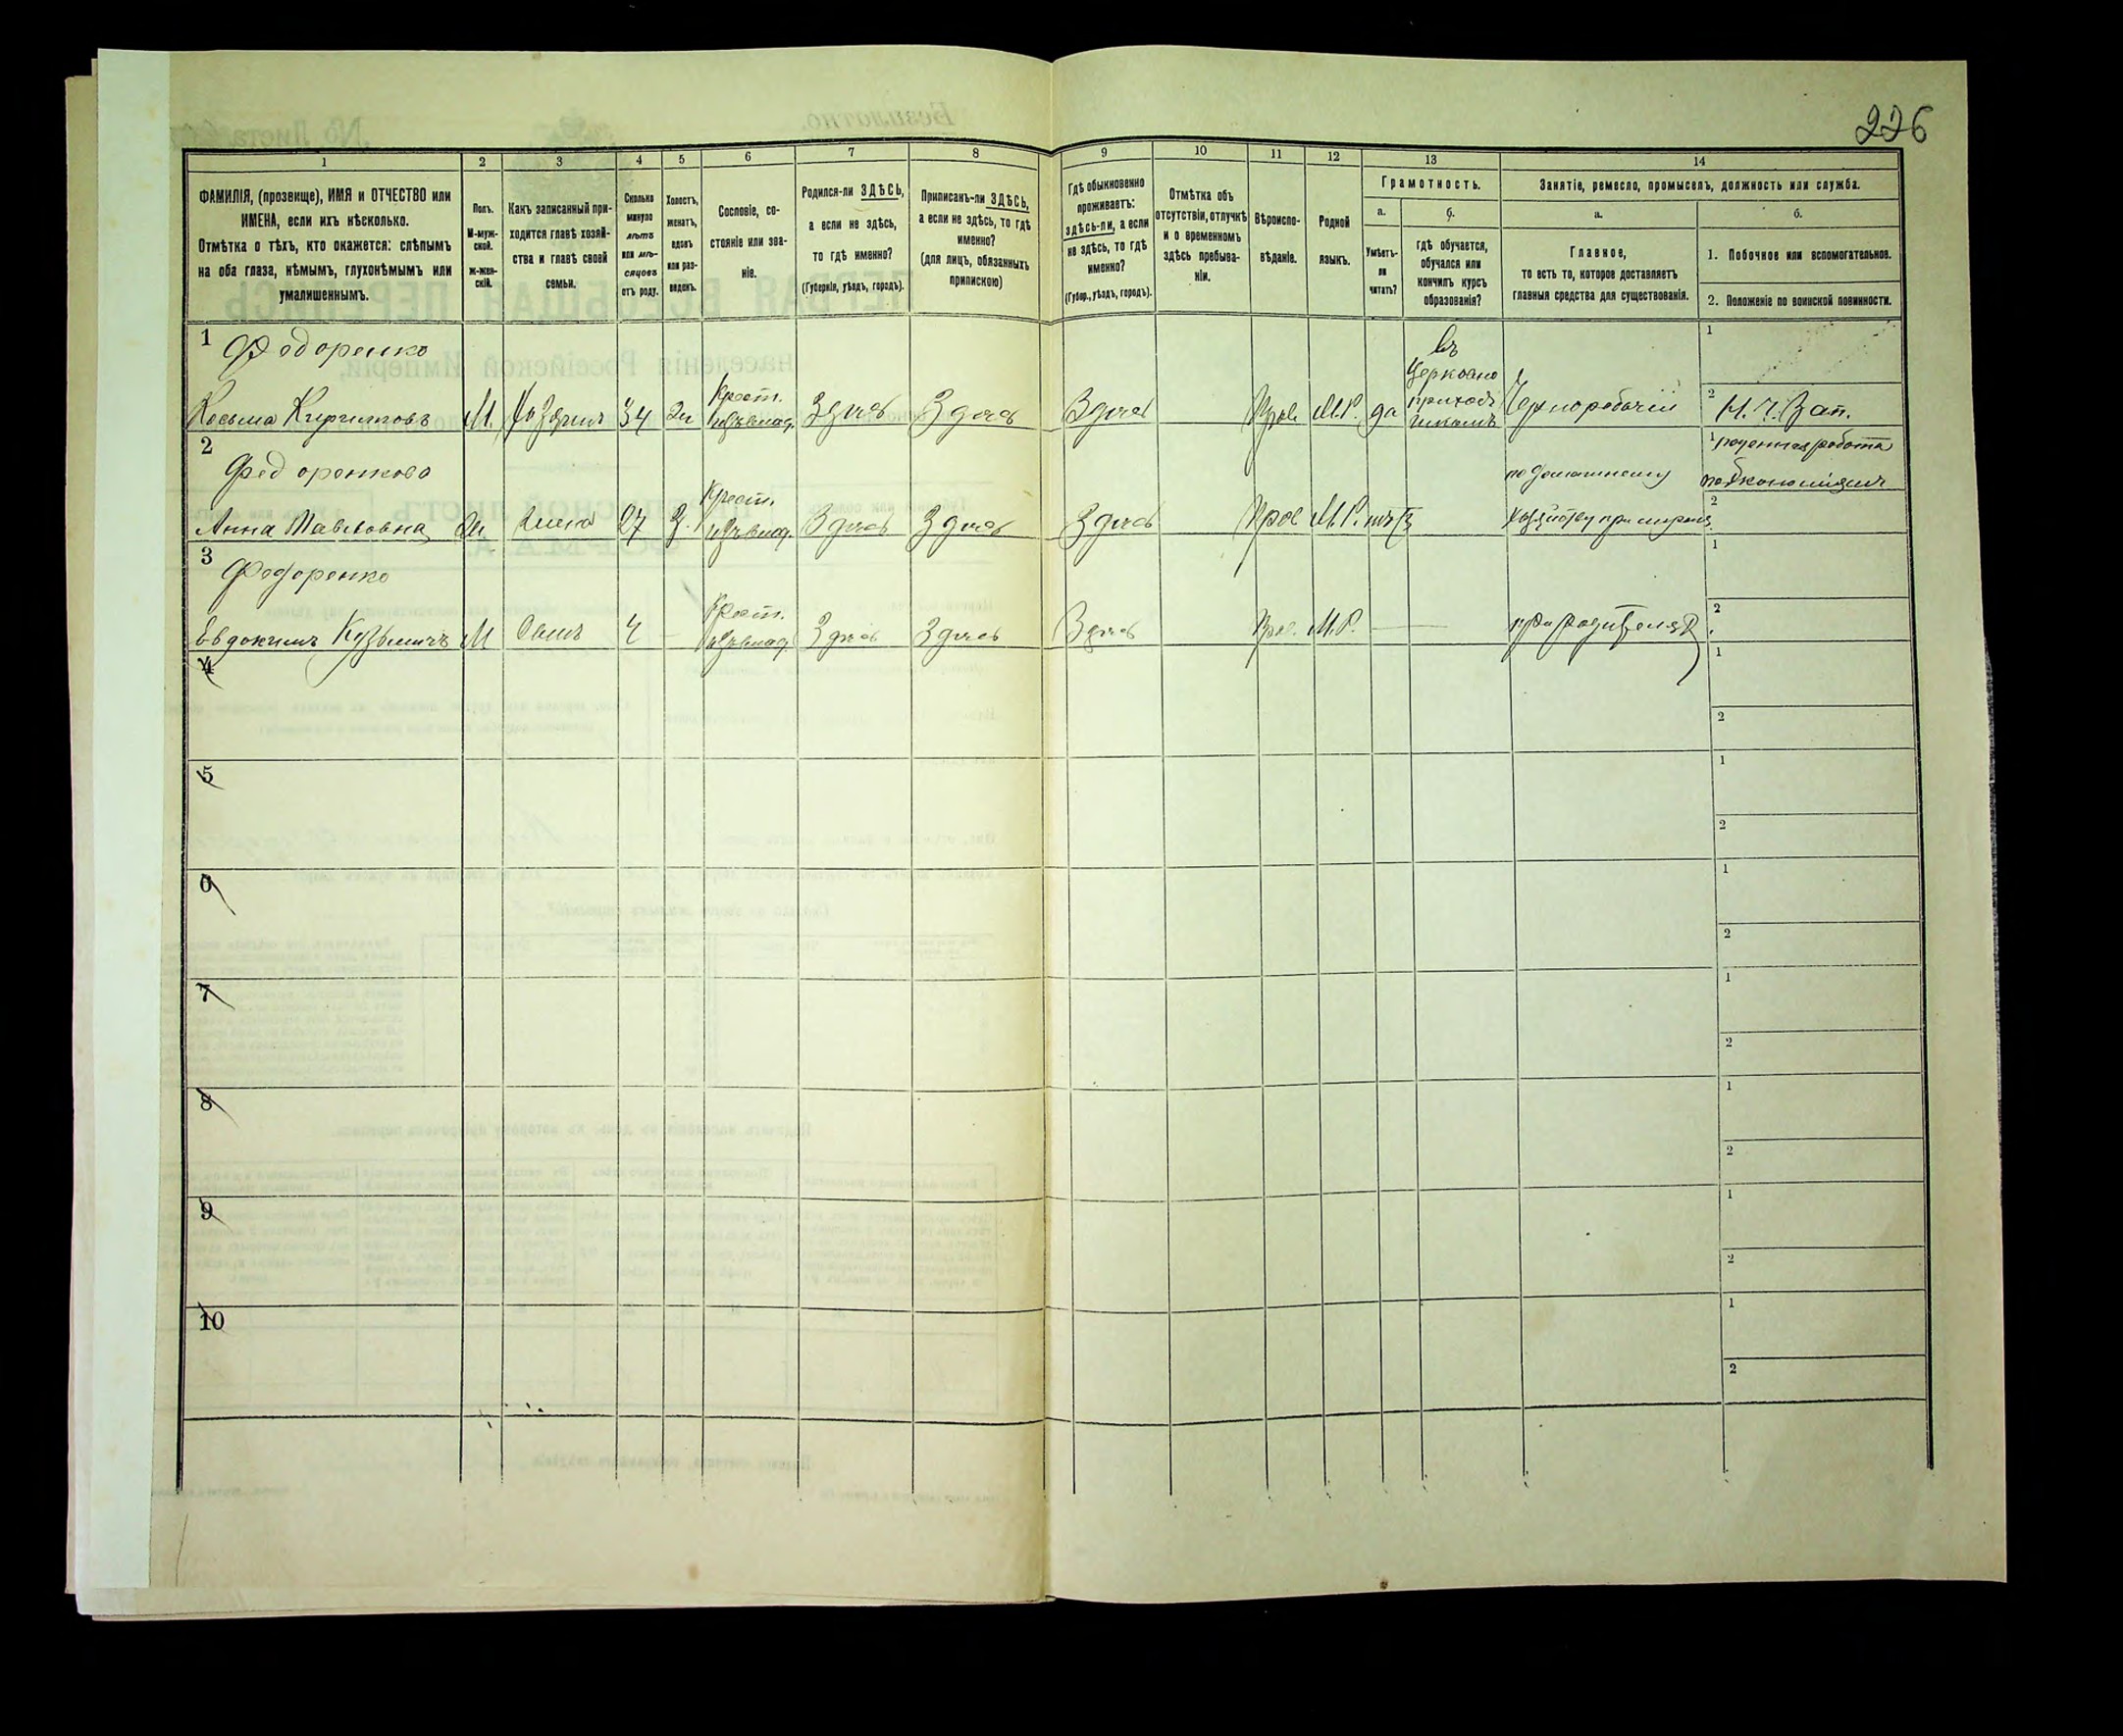 226
1 2 3 4 5 6 7 8 9 10 11 12 13 14
ФАМИЛІЯ, (прозвище), ИМЯ и ОТЧЕСТВО или
ИМЕНА, если ихъ нѣсколько.
Отмѣтка о тѣхъ, кто окажется: слѣпымъ
на оба глаза, нѣмымъ, глухонѣмымъ или
умалишеннымъ.
Полъ.
М-муж-
ской.
Ж-жен-
скій.
Какъ записанный при-
ходится главѣ хозяй-
ства и главѣ своей
семьи.
Сколько
минуло
лѣтъ
или мѣ-
сяцовъ
отъ роду.
Холостъ,
женатъ,
вдовъ
или раз-
веденъ.
Сословіе, со-
стояніе или зва-
ніе.
Родился-ли ЗДѢСЬ,
а если не здѣсь,
то гдѣ именно?
(Губернія, уѣздъ, городъ).
Приписанъ-ли ЗДѢСЬ,
а если не здѣсь, то гдѣ
именно?
(для лицъ, обязанныхъ
припискою)
Гдѣ обыкновенно
проживаетъ:
здѣсь-ли, а если
не здѣсь, то гдѣ
именно?
(Губер., уѣздъ, городъ).
Отмѣтка объ
отсутствіи, отлучкѣ
и о временномъ
здѣсь пребыва-
ніи.
Вѣроиспо-
вѣданіе.
Родной
языкъ.
Грамотность.
а.
Умѣетъ-
ли
читать?
б.
гдѣ обучается,
обучался или
кончилъ курсъ
образованія?
Занятіе, ремесло, промыселъ, должность или служба.
а.
Главное,
то есть то, которое доставляетъ
главныя средства для существованія.
б.
1. Побочное или вспомогательное.
2. Положеніе по воинской повинности.
1 Федоренко въ 1
Церковно
Крест. приход.
Косьма М. 34 Здѣсь Здѣсь Здѣсь М.Р. да Чернорабочій 2 Зап.
2 Федоренково 1
Крест. по домашнему
Анна Павловна жена 27 З. Здѣсь Здѣсь Здѣсь М.Р. при 2
3 Федоренко 1
Крест.
Евдокимъ Кузьмичъ М Сынъ 4 Здѣсь Здѣсь Здѣсь М.Р. при родителяхъ 2
4 1
2
5 1
2
6 1
2
7 1
2
8 1
2
9 1
2
10 1
2